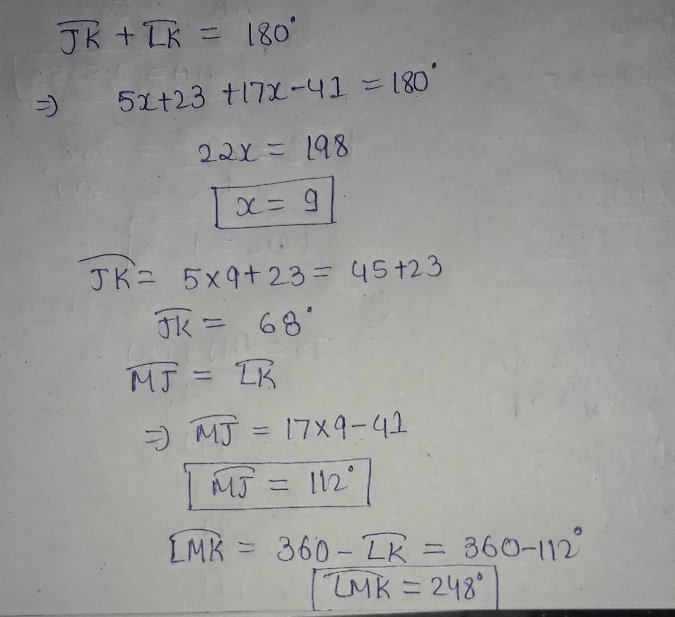 JK + LK = 180°
⇒ 5x+23 +17x-41 = 180°
22x = 198
x = 9
JK = 5×9+23 = 45+23
JK = 68°
MJ = LK
⇒ MJ = 17×9-41
MJ = 112°
LMK = 360 - LK = 360-112°
LMK = 248°